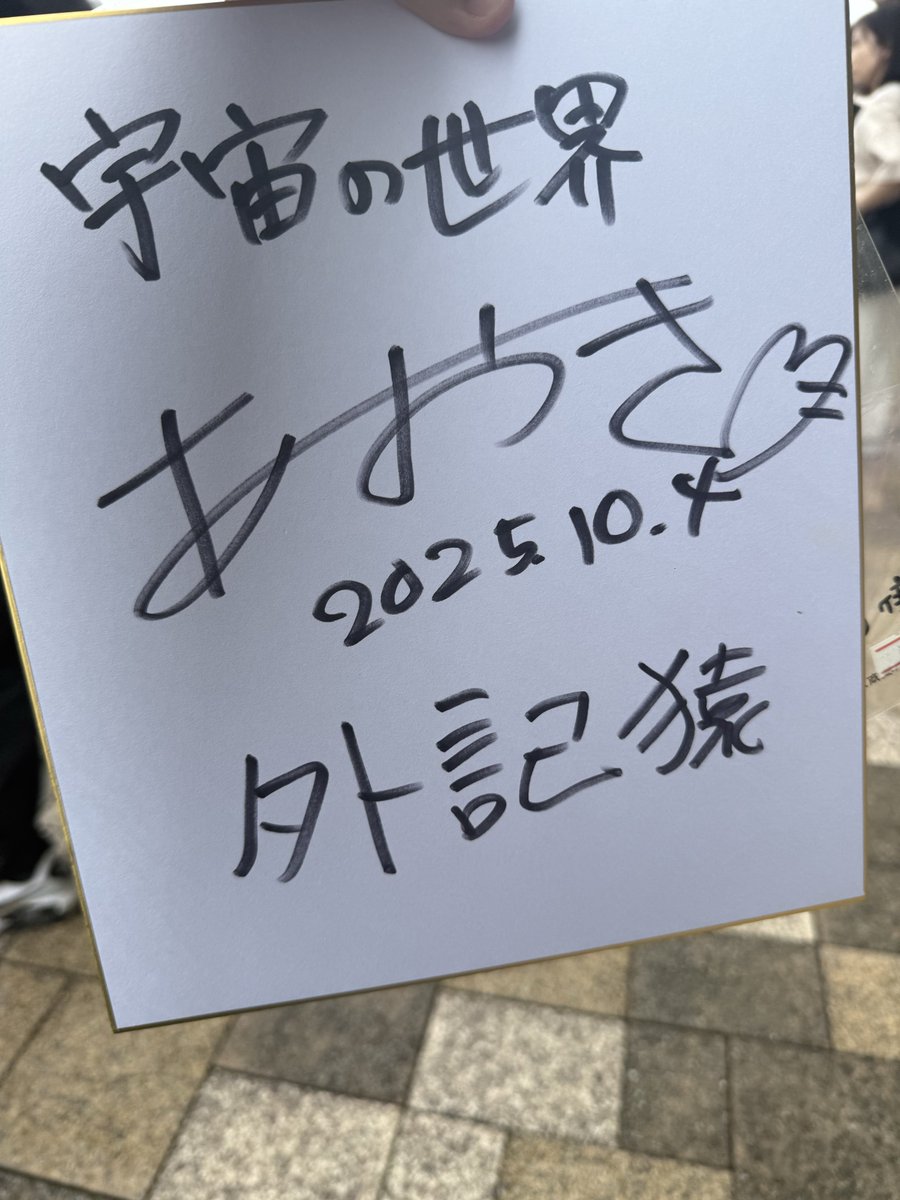 宇宙の世界
あやき
2025.10.4
外記猿